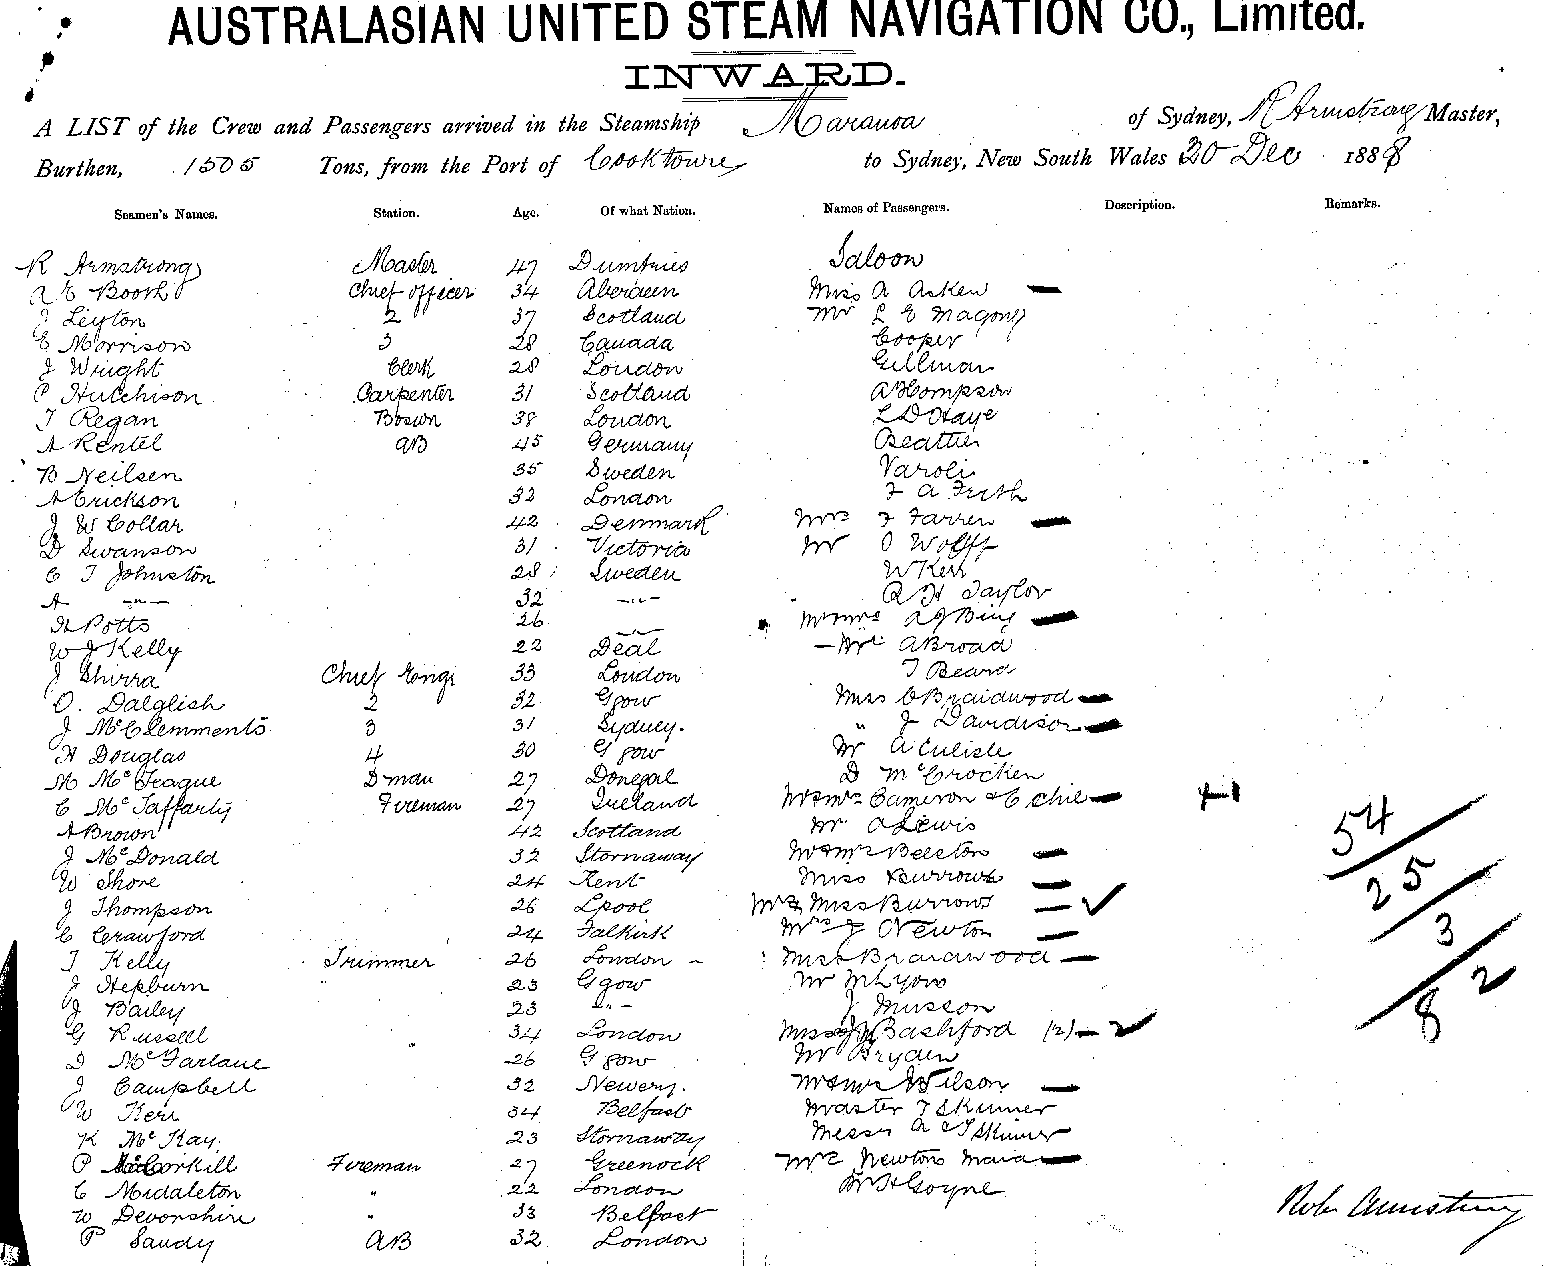 AUSTRALASIAN UNITED STEAM NAVIGATION CO., Limited.
INWARD.
A LIST of the Crew and Passengers arrived in the Steamship Maranoa of Sydney, R Armstrong Master,
Burthen, 1505 Tons, from the Port of Cooktown to Sydney, New South Wales 20 Dec 1888
Seamen's Names. Station. Age. Of what Nation. Names of Passengers. Description. Remarks.
Saloon
R Armstrong Master 47 Dumfries
A E Booth Chief officer 34 Aberdeen Miss A Asken —
J Leyton 2 37 Scotland Mr L E Magony
E Morrison 3 28 Canada Cooper
J Wright Clerk 28 London Gillman
P Hutchison Carpenter 31 Scotland A Thompson
T Regan Bosun 38 London L D Haye
A Rentel AB 45 Germany Beattie
B Neilsen 35 Sweden Varoli
A Erickson 32 London F A Frith
J W Collar 42 Denmark Mrs F Farren —
D Swanson 31 Victoria Mr O Wolff
C T Johnston 28 Sweden W Kerr
A —"— 32 —"— R H Taylor
H Potts 26 —"— Mr & Mrs A J Bing —
W J Kelly 22 Deal Mr A Broad
J Shirra Chief Engr 33 London T Beard
O. Dalglish 2 32 Ggow Miss C Braidwood —
J McClemments 3 31 Sydney. " J Davidison —
H Douglas 4 30 Ggow Mr A Culisle
M McTeague Dman 27 Donegal D McCrocken
C McTaffarty Fireman 27 Ireland Mr & Mrs Cameron & Chie — +1
A Brown 42 Scotland Mr A Lewis
J McDonald 32 Stornaway Mr & Mrs Beeston —
W Shore 24 Kent Miss Burrows —
J Thompson 26 Lpool Mrs & Miss Burrows — ✓
C Crawford 24 Falkirk Mrs J Newton —
T Kelly Trimmer 26 London Miss Braidwood —
J Hepburn 23 Ggow Mr M Lyow
J Bailey 23 "- J Musson
G Russell 34 London Misses Bashford (2) — ✓
D McFarlane 26 Ggow Mr Bryden
J Campbell 32 Newery. Mr & Mrs Wilson —
W Kerr 34 Belfast Master T Skinner
K McKay. 23 Stornaway Messrs A & J Skinner
P McCorkill Fireman 27 Greenock Mrs Newtons Maid —
C Middleton " 22 London Mr H Goyne
W Devonshire " 33 Belfast
P Saudy AB 32 London
54
25
3
2
8
Robt Armstrong